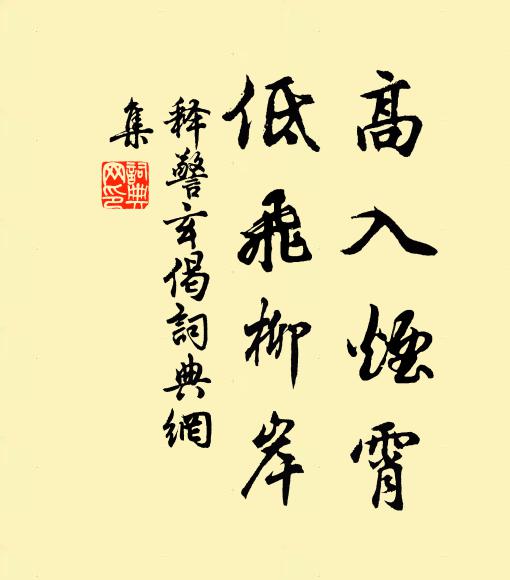 高入煙霄
低飛柳岸
释警玄偈詞典網
集
詞典
网印